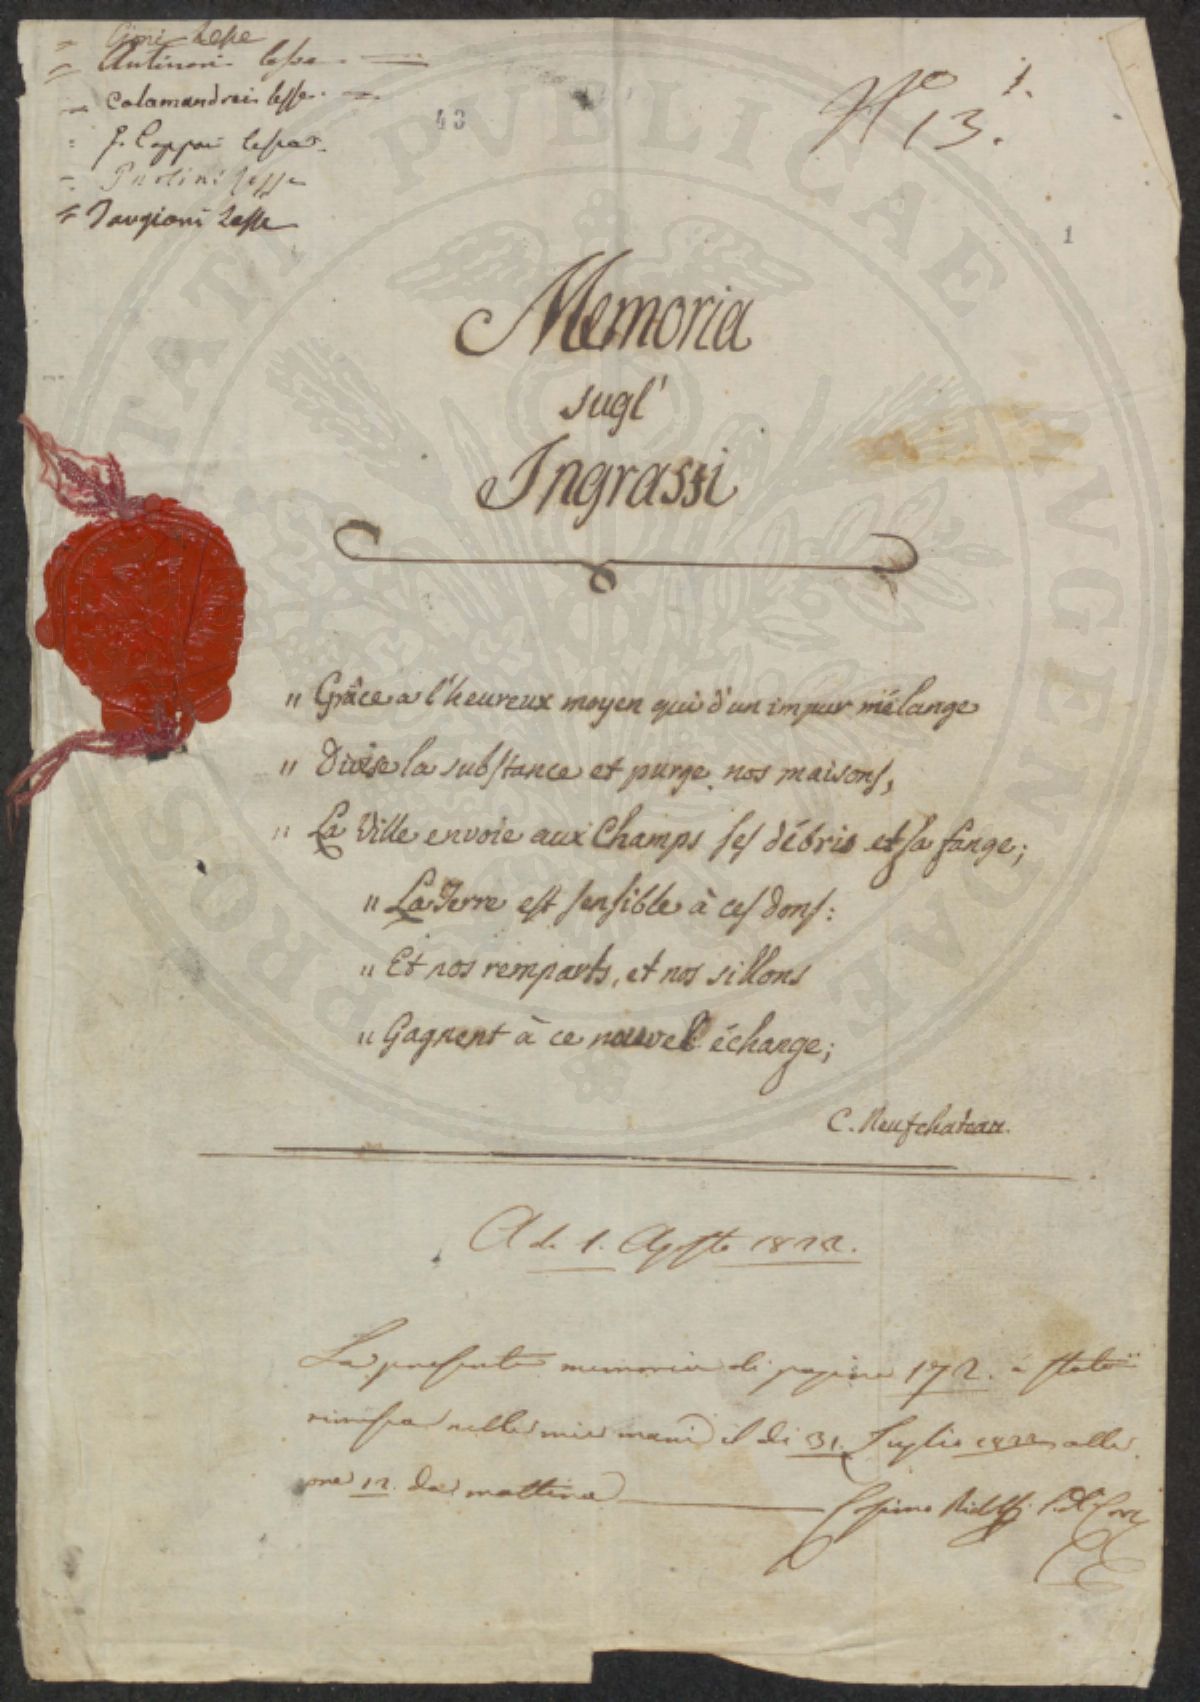 Antinori lesse
Calamandrei lesse.
G. Capponi lesse
Paolini lesse
Tangioni Lesse
43
N.o 13.
1.
1
Memoria
sugl'
Ingrassi
" Grâce a l'heureux moyen qui d'un impur mélange
" Divise la substance et purge nos maisons,
" La Ville envoie aux Champs ses débris et sa fange;
" La Terre est sensible à ces dons:
" Et nos remparts, et nos sillons
" Gagnent à ce nouvel échange;
C. Neufchateau.
A di 1. Agosto 1822.
La presente memoria di pagine 172. è stata
rimessa nelle mie mani il di 31. Luglio 1822 alle
ore 12. da mattina
Cosimo Ridolfi S. d. Corr.
PROSPERITATI PVBLICAE AVGENDAE